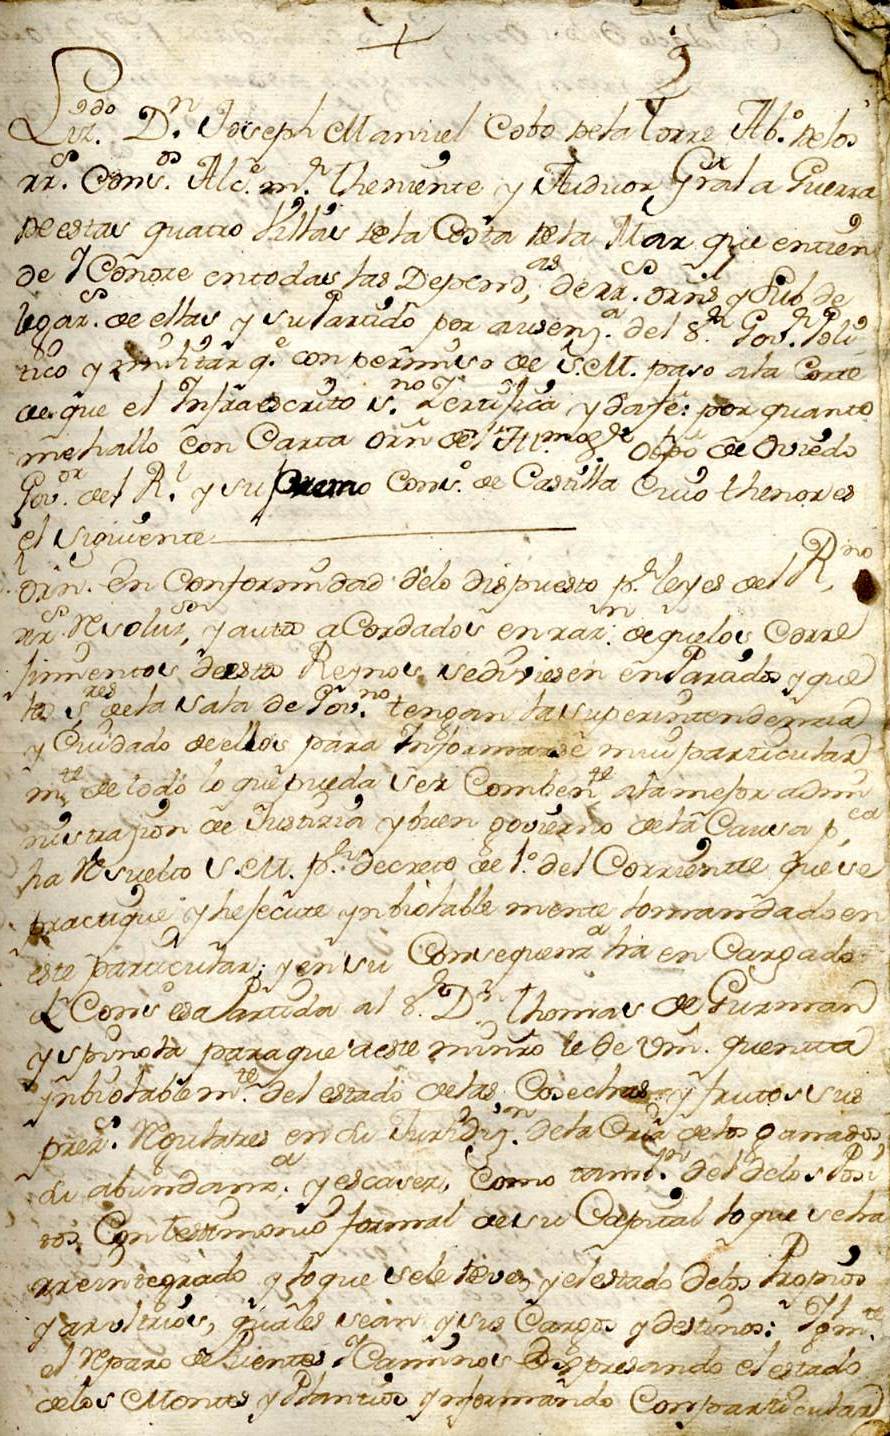 +
Lizdo. Dn. Joseph Manuel Cobo de la Torre Abo. de los
rrs. Consos. Alce. mr. theniente y Auditor Gral a Guerra
de estas quatro Villas de la Costa de la Mar que entien
de y Conoze en todas las Dependas, de rrs. orns y Sub de
legars. de ellas y su Partido por ausenza. del Sr. Govr. Poli
tico y militar qe. con permiso de S. M. paso a la Corte
de que el Infraescrito sno. Zertifica y da fe: por quanto
me hallo con Carta orn del Illmo Sr. Obpo de Oviedo
Govor. del Rl. y supremo Conso. de Castilla Cuio thenor es
el siguiente
orn. En Conformidad de lo dispuesto pr. leyes del Rno,
rrs. Resoluzs, y autos aCordados en razn. de que los Corre
simientos de estos Reynos se dividiesen en Partidos y que
los sres de la sala de Govno. tengan la superintendencia
y Cuidado de ellos para Informarse mui particular
mte de todo lo que pueda ser Combente a la mejor admi
nistrazion de Justizia y buen govierno de la Causa pca,
ha Resuelto S. M. pr. decreto de 1o. del Corriente que se
practique y hesecute ynbiolable mente lo mandado en
este particular; y en su Consequenza ha en Cargado
el Conso esa Partida al Sr. Dn. thomas de Guzman
y spinola para que a este minro le de Vm. quenta
ynbiolablemte. del estado de las Cosechas y frutos sus
prezs. Regulares en su Jurisdizn. de la Cria de los ganados,
su abundanza. y escasez, Como tamn. del de los Posi
tos, Con testimonio formal de su Capital lo que se ha
rreintegrado y lo que se le deve, y el estado de los Propios
y arvitrios, quales sean y sus Cargos y destinos: Ygmte.
el Reparo de Puentes y Caminos Expresando el estado
de los Montes y Plantios ynformando Con particular